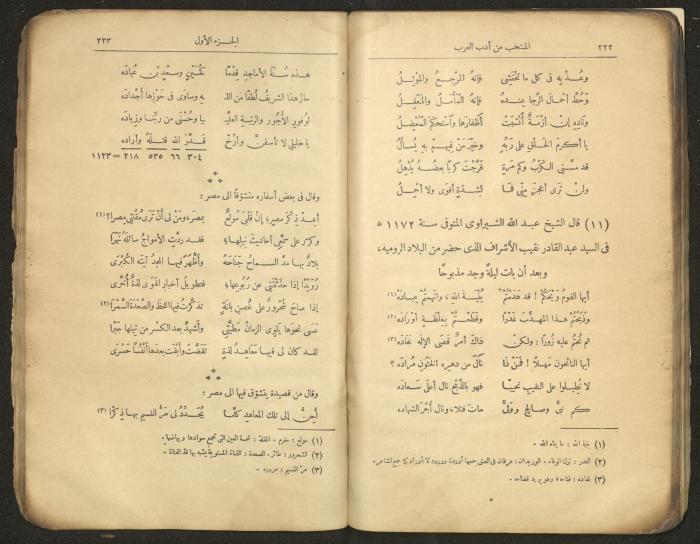 ٢٢٢
المنتخب من أدب العرب
وعُذْ به فى كل ما تختشى فإنه المرجع والموئل
وحُطّ أحمال الرجا عنده فإنه المأمل والمعقل
وناده إن أزمة أنشبت أظفارها واستحكم المعضل
يا أكرم الخلق على ربّه وخير من فيهم به يُسأل
قد مسّنى الكرب وكم مرة فرّجت كربًا بعضه يذهل
ولن ترى أعجز منّى فما لشدة أقوى ولا أحمل
(١١) قال الشيخ عبد الله الشبراوى المتوفى سنة ١١٧٢ ه
فى السيد عبد القادر نقيب الأشراف الذى حضر من البلاد الروميه،
وبعد أن بات ليلة وجد مذبوحًا
أيها القوم ويحكم! قد هدمتم بُنْيَة الله، واتهمتم عباده (١)
وذبحتم هذا المهذب غدرًا وقطعتم بغلظة أوراده (٢)
ثم نحتم عليه زُورًا: ولكن ذاك أمر قضى الإله نفاده (٣)
أيها النائحون مهلًا! فمن ذا نال من دهره الخئون مراده؟
لا تُطيلوا على النقيب نحيبا فهو بالذبح نال أعلى سعاده
كم نبىّ وصالح وولىّ مات قتلا، ونال أجر الشهاده
(١) بنية الله: ما بناه الله.
(٢) الغدر: ترك الوفاء. الوريدان: عرقان فى العنق جمعها أوردة وورود لا أوراد كما جمع الشاعر.
(٣) نفاده: فناءه، وهو يريد قضاءه.
الجزء الأول
٢٢٣
هذه سُنّة الأماجد قِدْمًا كحسين وسعد بن عباده
حاز هذا الشريف لُطفًا من الله وساوى فى حوزها أجداده
لوفور الأجور والرتبة العليا وحُسْنى من ربنا وزياده
يا خليلى لا تأسفنّ وأرّخ قدّر الله قتله وأراده
٣٠٤ ٦٦ ٥٣٥ ٢١٨ = ١١٢٣
وقال فى بعض أسفاره متشوقًا الى مصر:
أعد ذكر مصر، إن قلبى مولع بمصر، ومن لى أن ترى مقلتى مصرا؟ (١)
وكرر على سمعى أحاديث نيلها، فقد ردّت الأمواج سائله نهرا
بلاد بها مدّ السماح جناحه وأظهر فيها المجد آيته الكبرى
رويدًا إذا حدثتنى عن ربوعها، فتطويل أخبار الهوى لذة أخرى
إذا صاح شحرور على غصن بانة تذكرت فيها اللحظ والصعدة السمرا (٢)
عسى نحوها يلوى الزمان مطيتى وأشهد بعد الكسر من نيلها جبرا
لقد كان لى فيها معاهد لذة تقضت وأبقت بعدها أنفسًا حسرى
وقال من قصيدة يتشوق فيها الى مصر:
أحنّ إلى تلك المعاهد كلما يجدد لى مرّ النسيم بها ذكرا (٣)
(١) مولع: مغرم. المقلة: شحمة العين التى تجمع سوادها وبياضها.
(٢) الشحرور: طائر. الصعدة: القناة المستوية يشبه بها قدّ الفتاة.
(٣) مرّ النسيم: مروره.